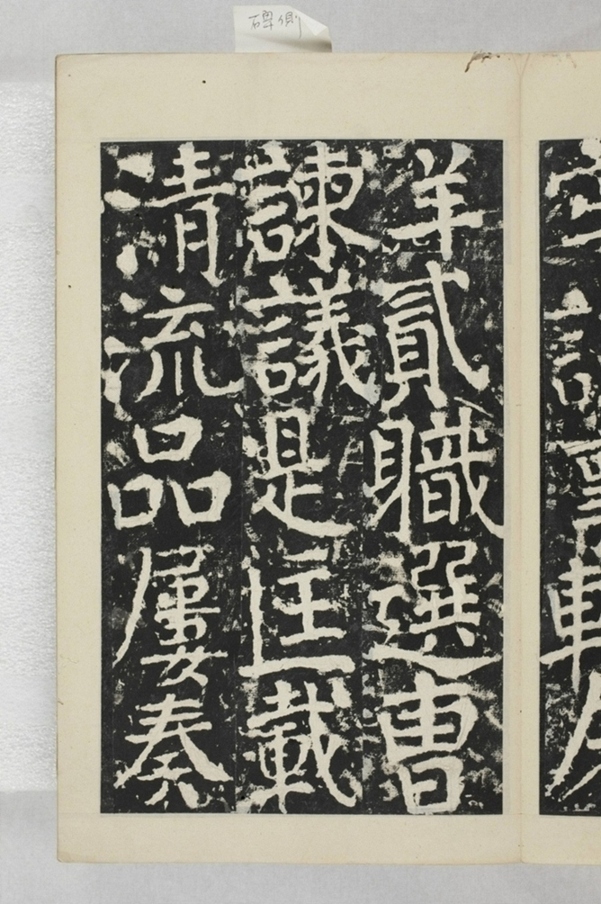 碑側
羊貳職選曹
諫議是匡載
清流品屢奏